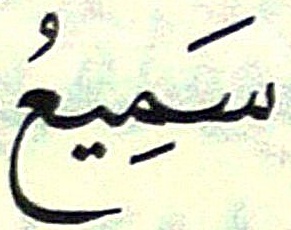 سَمِيعُ